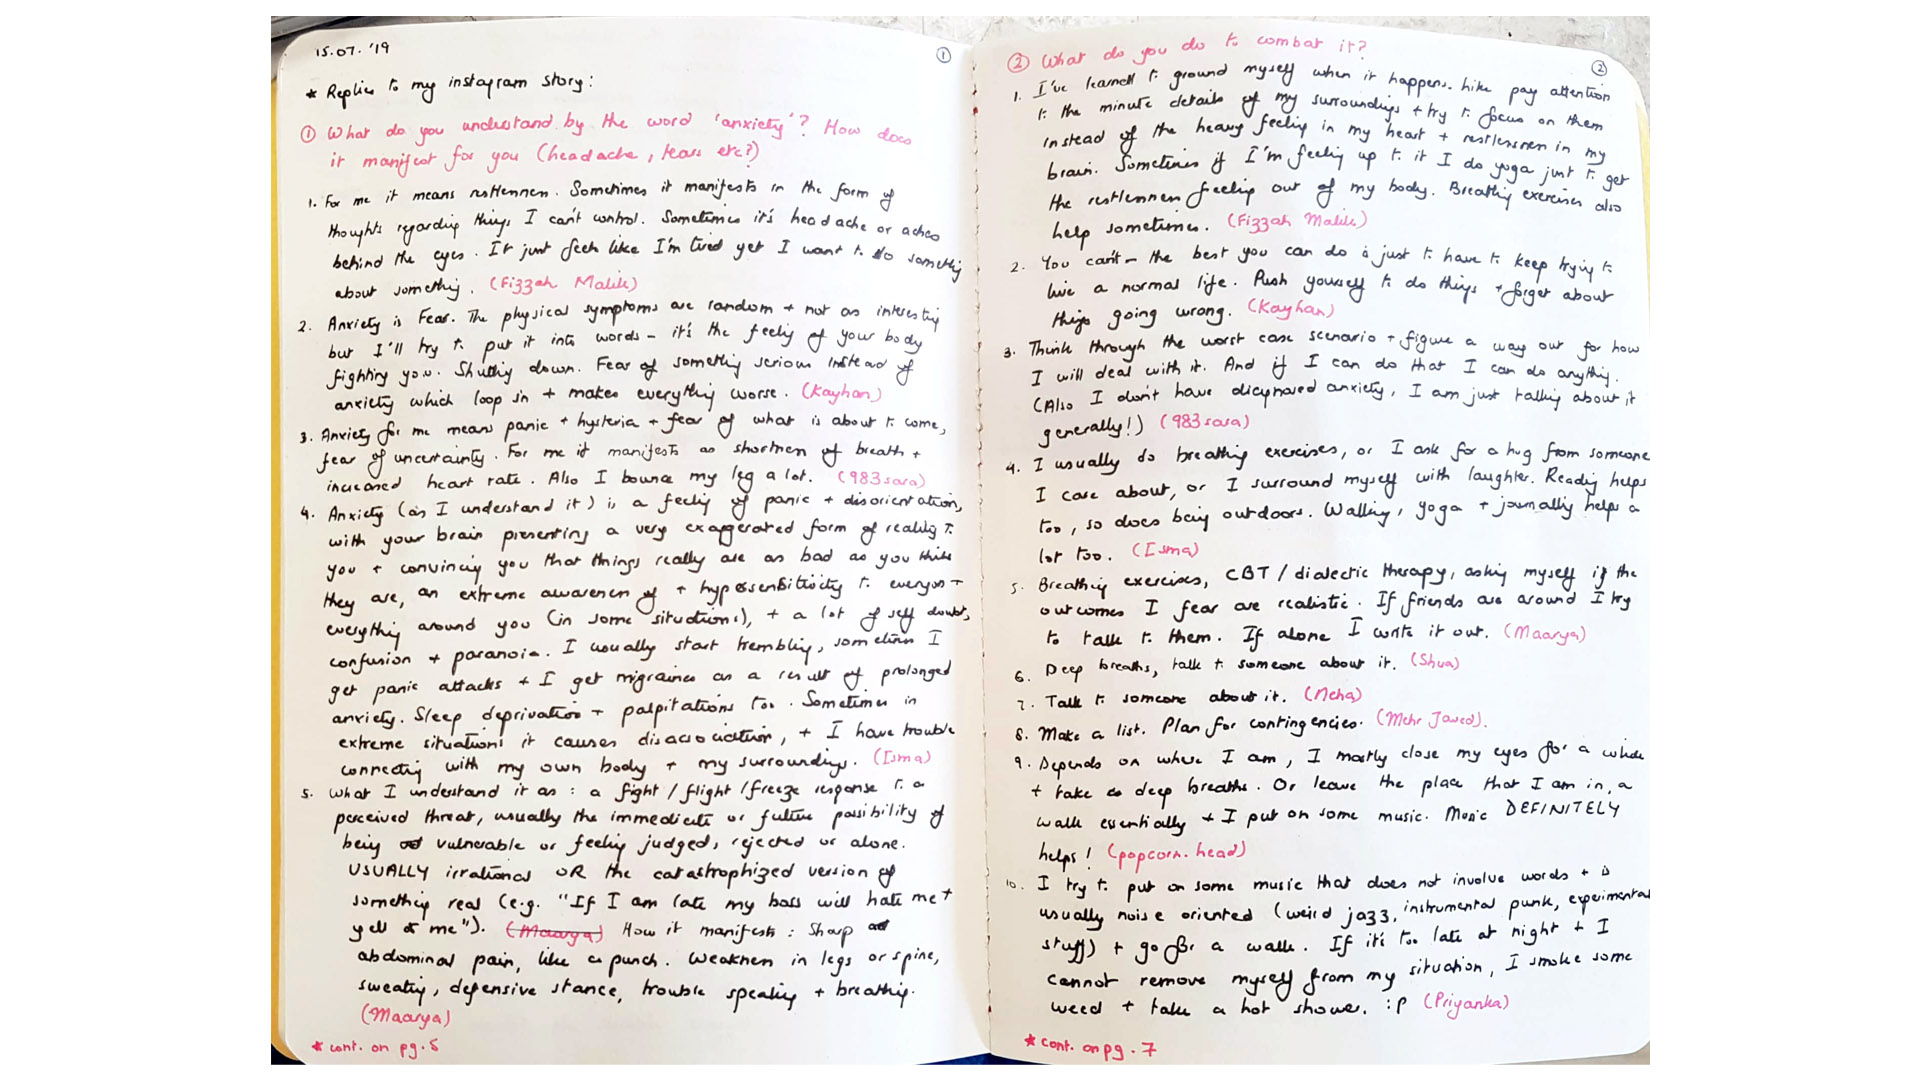 15.07.'19
①
* Replies to my instagram story:
① What do you understand by the word 'anxiety'? How does
it manifest for you (headache, tears etc?)
1. For me it means restlessness. Sometimes it manifests in the form of
thoughts regarding things I can't control. Sometimes it's headache or aches
behind the eyes. It just feels like I'm tired yet I want to do something
about something. (Fizzah Malik)
2. Anxiety is Fear. The physical symptoms are random + not as interesting
but I'll try to put it into words - it's the feeling of your body
fighting you. Shutting down. Fear of something serious instead of
anxiety which loops in + makes everything worse. (Kayhan)
3. Anxiety for me means panic + hysteria + fear of what is about to come,
fear of uncertainty. For me it manifests as shortness of breath +
increased heart rate. Also I bounce my leg a lot. (983sara)
4. Anxiety (as I understand it) is a feeling of panic + disorientation,
with your brain presenting a very exaggerated form of reality to
you + convincing you that things really are as bad as you think
they are, an extreme awareness of + hypersensitivity to everyone +
everything around you (in some situations), + a lot of self doubt,
confusion + paranoia. I usually start trembling, sometimes I
get panic attacks + I get migraines as a result of prolonged
anxiety. Sleep deprivation + palpitations too. Sometimes in
extreme situations it causes disassociation, + I have trouble
connecting with my own body + my surroundings. (Isma)
5. What I understand it as: a fight / flight / freeze response to a
perceived threat, usually the immediate or future possibility of
being vulnerable or feeling judged, rejected or alone.
USUALLY irrational OR the catastrophized version of
something real (e.g. "If I am late my boss will hate me +
yell at me"). (Maarya) How it manifests: Sharp
abdominal pain, like a punch. Weakness in legs or spine,
sweating, defensive stance, trouble speaking + breathing.
(Maarya)
* cont. on pg. 5
② What do you do to combat it?
②
1. I've learned to ground myself when it happens. Like pay attention
to the minute details of my surroundings + try to focus on them
instead of the heavy feeling in my heart + restlessness in my
brain. Sometimes if I'm feeling up to it I do yoga just to get
the restlessness feeling out of my body. Breathing exercises also
help sometimes. (Fizzah Malik)
2. You can't - the best you can do is just to have to keep trying to
live a normal life. Push yourself to do things + forget about
things going wrong. (Kayhan)
3. Think through the worst case scenario + figure a way out for how
I will deal with it. And if I can do that I can do anything.
(Also I don't have diagnosed anxiety, I am just talking about it
generally!) (983sara)
4. I usually do breathing exercises, or I ask for a hug from someone
I care about, or I surround myself with laughter. Reading helps
too, so does being outdoors. Walking, yoga + journalling helps a
lot too. (Isma)
5. Breathing exercises, CBT / dialectic therapy, asking myself if the
outcomes I fear are realistic. If friends are around I try
to talk to them. If alone I write it out. (Maarya)
6. Deep breaths, talk to someone about it. (Shua)
7. Talk to someone about it. (Neha)
8. Make a list. Plan for contingencies. (Mehr Javed).
9. Depends on where I am, I mostly close my eyes for a while
+ take deep breaths. Or leave the place that I am in, a
walk essentially + I put on some music. Music DEFINITELY
helps! (popcorn.head)
10. I try to put on some music that does not involve words + is
usually noise oriented (weird jazz, instrumental punk, experimental
stuff) + go for a walk. If it's too late at night + I
cannot remove myself from my situation, I smoke some
weed + take a hot shower. :P (Priyanka)
* cont. on pg. 7